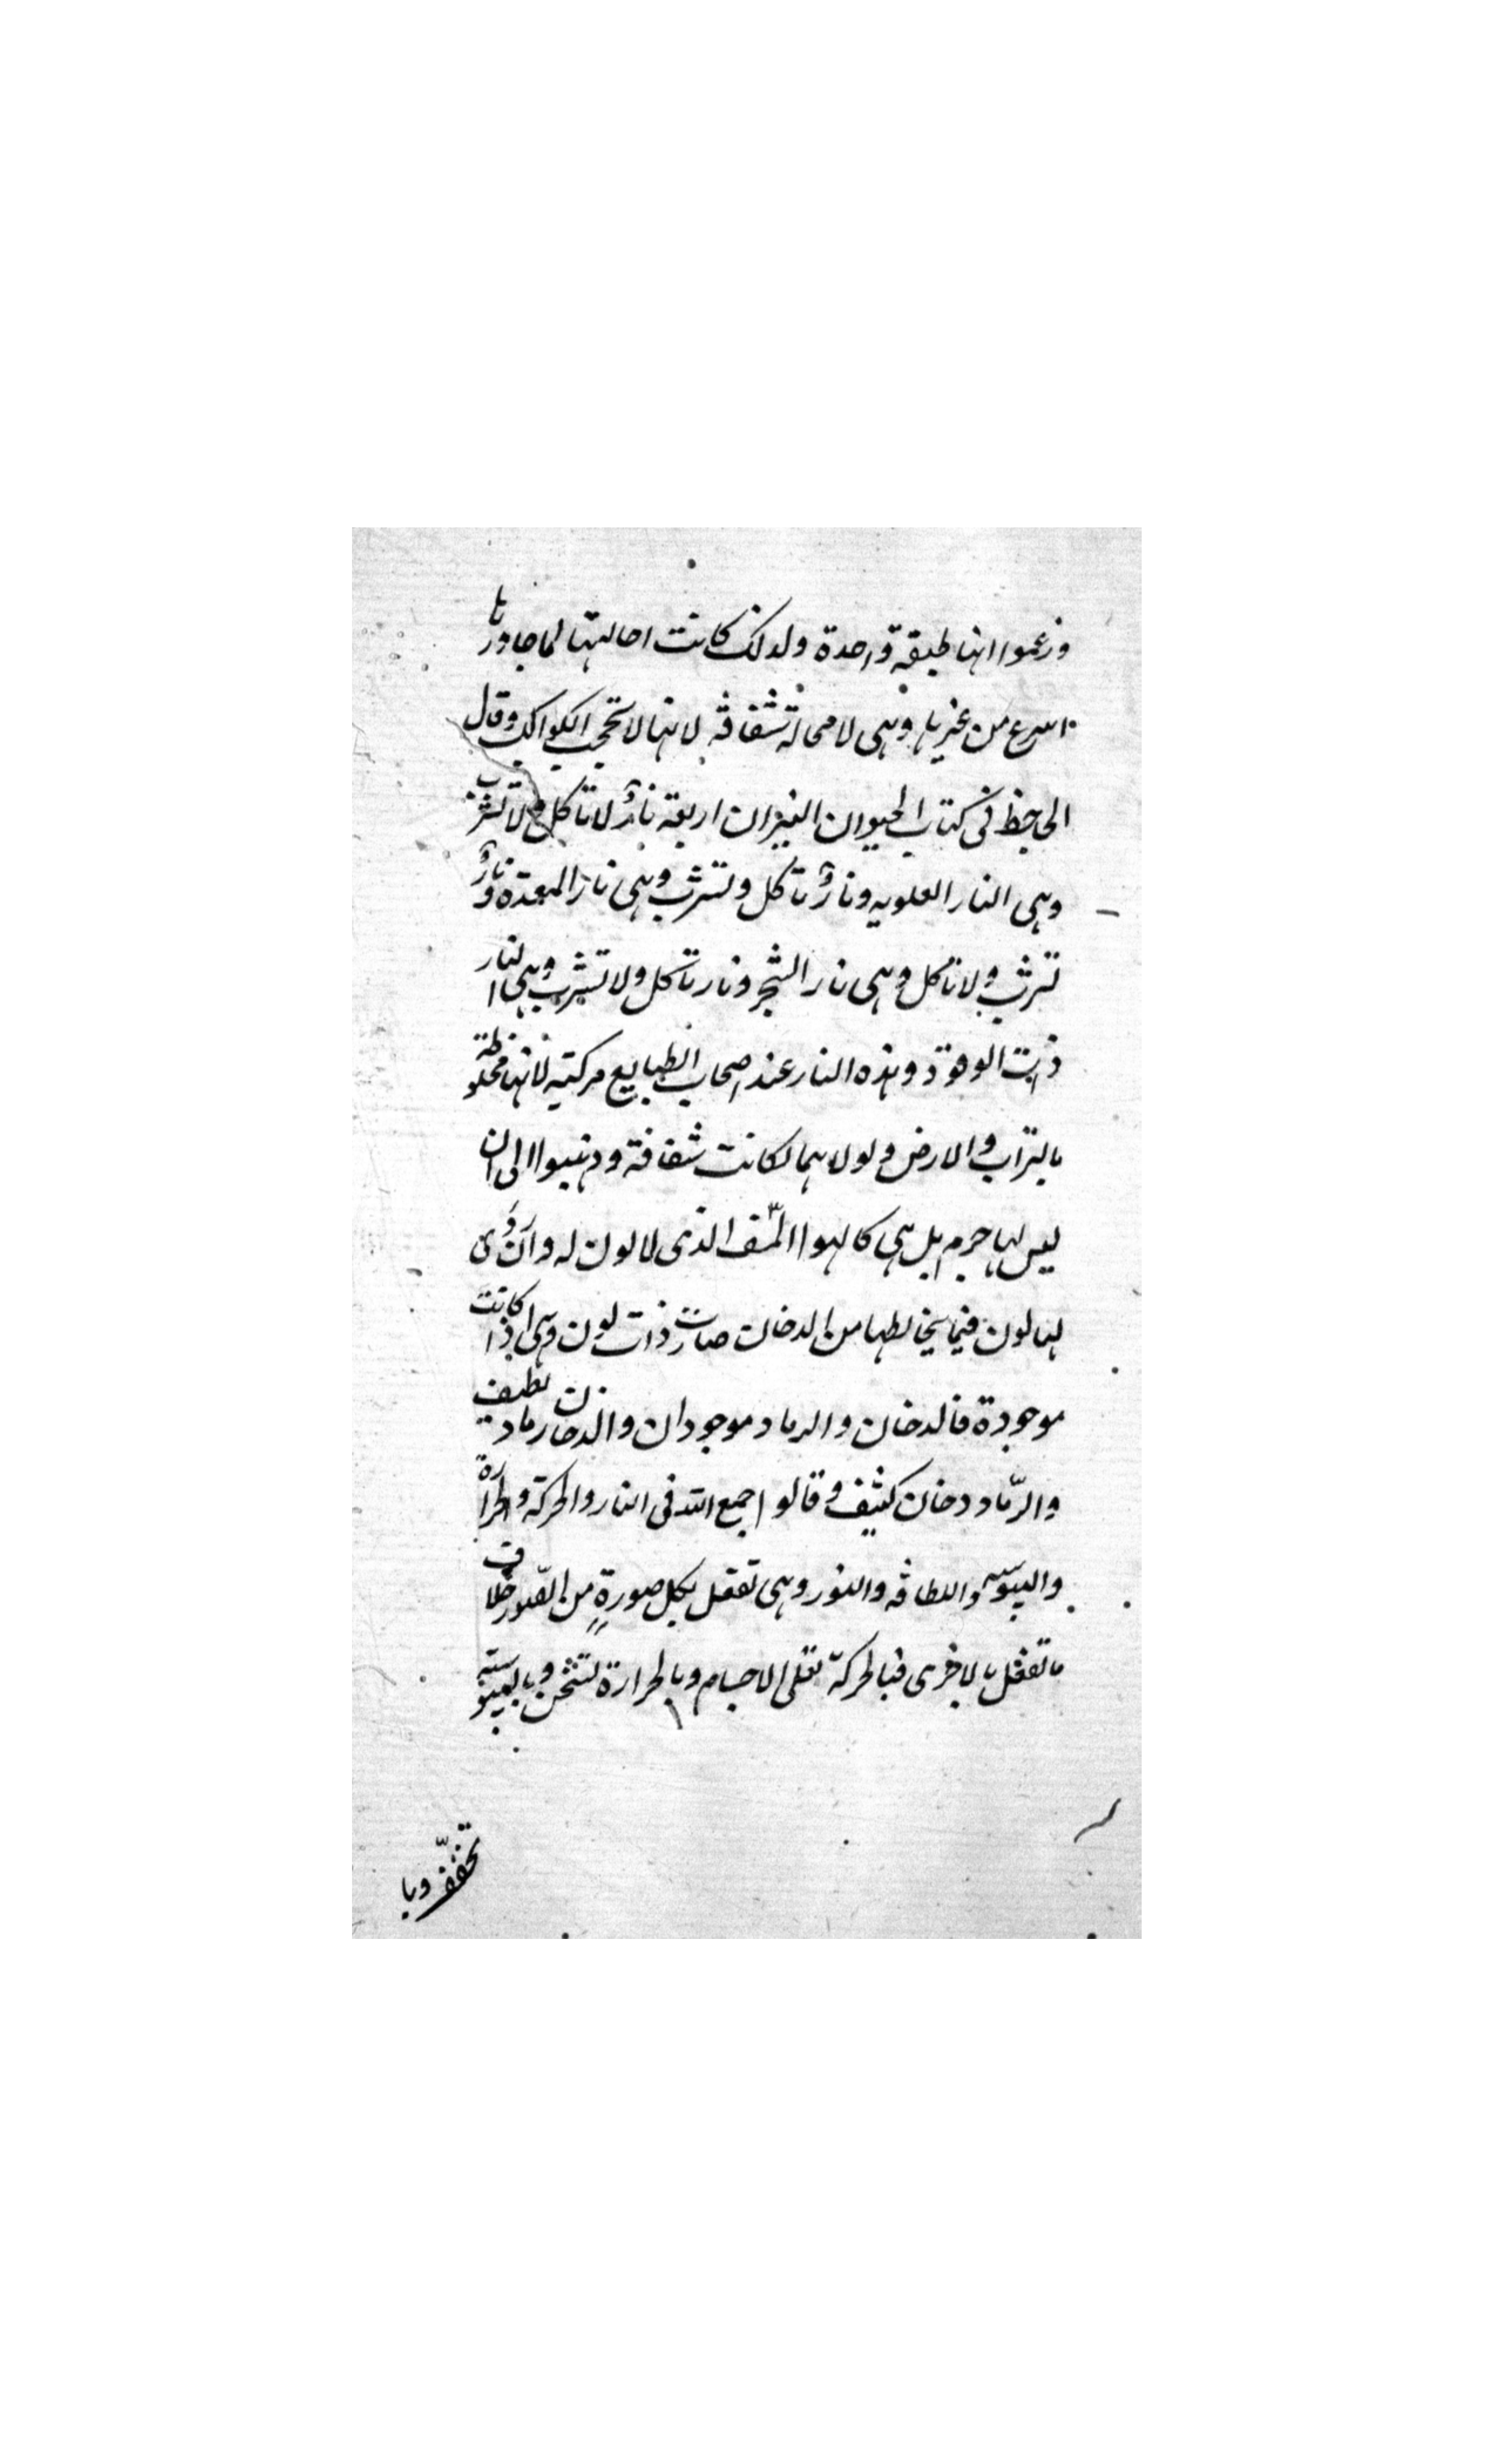 وزعموا انها طبقة واحدة ولذلك كانت احالتها لما جاورها
اسرع من غيرها وهى لا محالة شفافة لانها لا تحجب الكواكب وقال
الجاحظ فى كتاب الحيوان النيران اربعة نارٌ لا تاكل ولا تشرب
وهى النار العلويه ونارٌ تاكل وتشرب وهى نار المعدة ونارٌ
تشرب ولا تاكل وهى نار الشجر ونار تاكل ولا تشرب وهى النار
ذات الوقود وهذه النار عند اصحاب الطبايع مركبه لانها مخلوطة
بالتراب والارض ولولاهما لكانت شفافة وذهبوا الى ان
ليس لها جرم بل هى كالهوا الذى لا لون له وان رؤى
لها لون فيما يخالطها من الدخان صارت ذات لون وهى اذا كانت
موجودة فالدخان والرماد موجودان والدخان رماد لطيف
والرّماد دخان كثيف وقالوا جمع الله فى النار والحركة والحرارة
واليبوسه واللطافه والنور وهى تفعل بكل صورةٍ من الصّور خلاف
ما تفعل بالاخرى فبالحركة تغلى الاجسام وبالحرارة تسخن وباليبوسة
تجفّف وبا